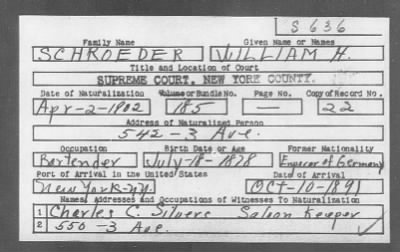 S 636
Family Name Given Name or Names
SCHROEDER WILLIAM H.
Title and Location of Court
SUPREME COURT, NEW YORK COUNTY.
Date of Naturalization Volume or Bundle No. Page No. Copy of Record No.
Apr-2-1902 185 — 22
Address of Naturalized Person
542-3 Ave.
Occupation Birth Date or Age Former Nationality
Bartender July-18-1878 Emperor of Germany
Port of Arrival in the United States Date of Arrival
New York-NY. Oct-10-1891
Names, Addresses and Occupations of Witnesses To Naturalization
1 Charles C. Silvers Saloon Keeper
2 550-3 Ave.